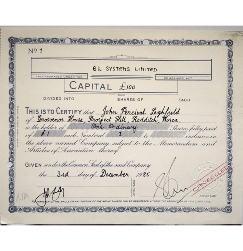 No 1
BL SYSTEMS LIMITED
CAPITAL £100
DIVIDED INTO SHARES OF EACH
THIS IS TO CERTIFY that John Percival Leighfield
of Grosvenor House Prospect Hill Redditch Worcs
is the Holder of One Ordinary Shares fully paid
of £1 each Numbered 1 to inclusive in
the above named Company subject to the Memorandum and
Articles of Association thereof
GIVEN under the Common Seal of the said Company
the 3rd day of December 1985
CANCELLED